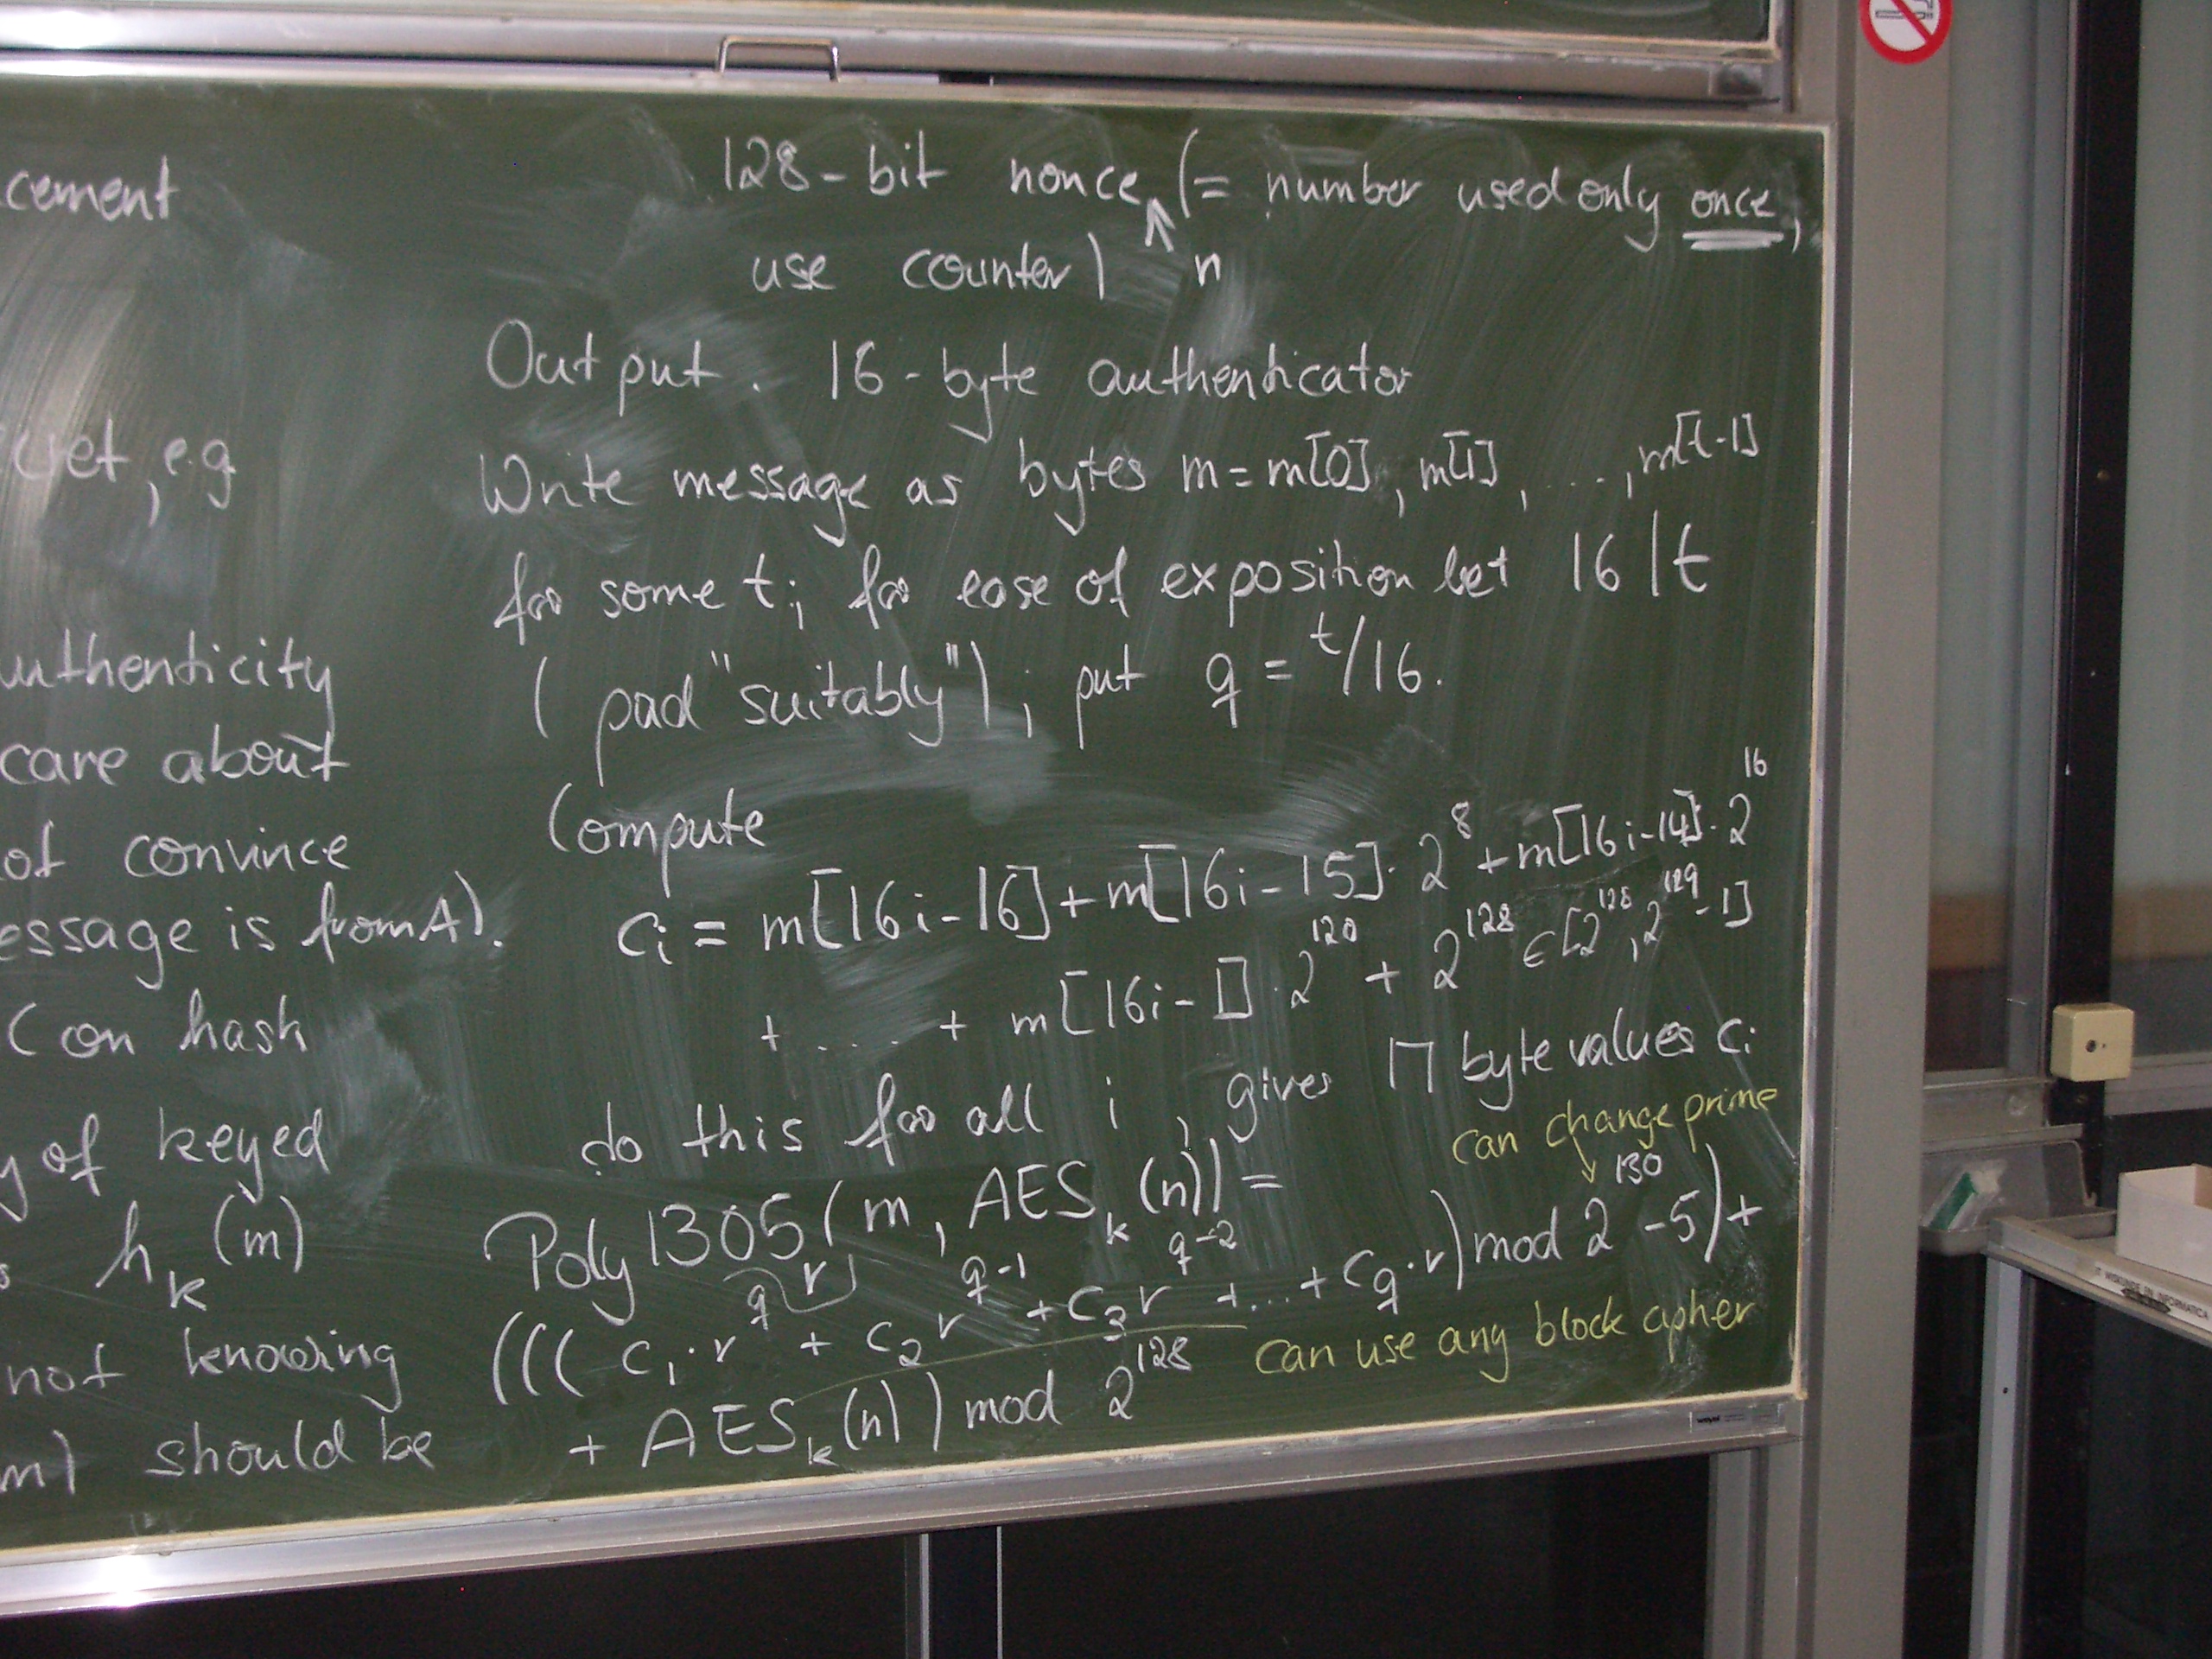 cement
cret, e.g
uthenticity
care about
of convince
essage is from A).
(on hash
y of keyed
s h_k (m)
not knowing
m) should be
128-bit nonce (= number used only once,
use counter) n
Output. 16-byte authenticator
Write message as bytes m = m[0], m[1], ..., m[t-1]
for some t; for ease of exposition let 16 | t
(pad "suitably"); put q = t/16.
Compute
c_i = m[16i-16] + m[16i-15]·2^8 + m[16i-14]·2^16
+ .... + m[16i-1]·2^120 + 2^128 ∈ [2^128, 2^129-1]
do this for all i, gives 17 byte values c_i
can change prime
Poly1305_r (m, AES_k (n)) =
(((c_1·r^q + c_2 r^q-1 + c_3 r^q-2 + ... + c_q·r) mod 2^130 -5) +
can use any block cipher
+ AES_k (n)) mod 2^128